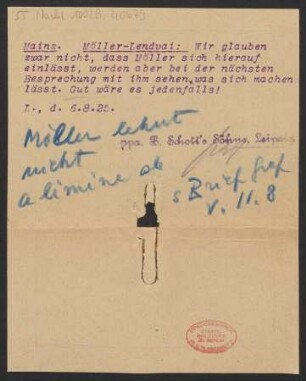 Mainz. Möller-Lendvai: Wir glauben
zwar nicht, dass Möller sich hierauf
einlässt, werden aber bei der nächsten
Besprechung mit ihm sehen, was sich machen
lässt. Gut wäre es jedenfalls!
L., d. 6.8.25.
ppa. B. Schott's Söhne, Leipzig
Möller lehnt
nicht
a limine ab
s Brief
v. 11.8